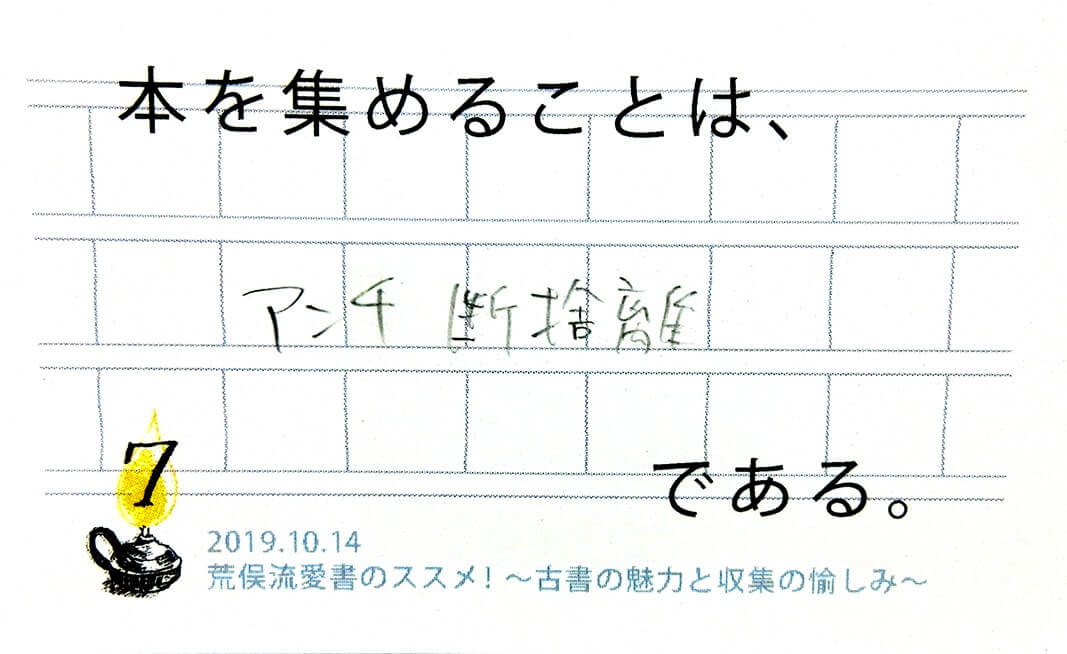 本を集めることは、
アンチ 断捨離
である。
7
2019.10.14
荒俣流愛書のススメ!~古書の魅力と収集の愉しみ~